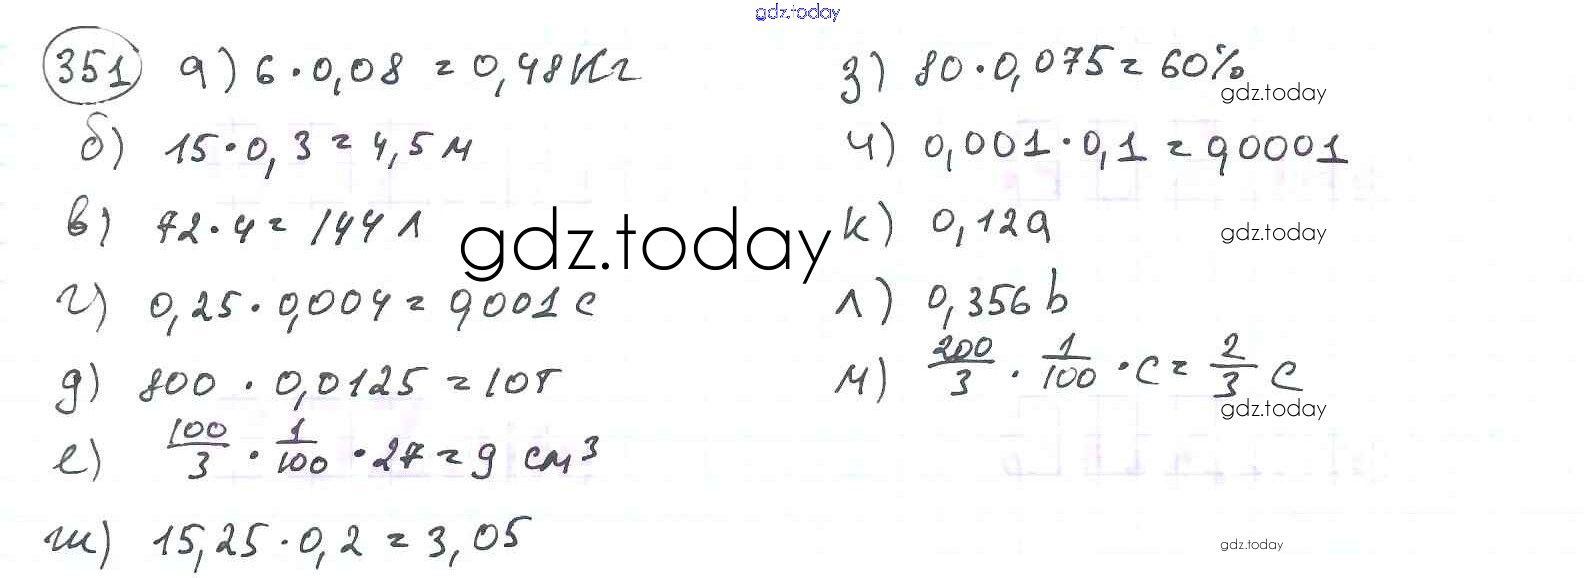 gdz.today
351 а) 6 · 0,08 = 0,48 кг
б) 15 · 0,3 = 4,5 м
в) 72 · 4 = 144 л
г) 0,25 · 0,004 = 0,001 с
д) 800 · 0,0125 = 10т
е) 100/3 · 1/100 · 27 = 9 см³
ж) 15,25 · 0,2 = 3,05
з) 80 · 0,075 = 60%
gdz.today
и) 0,001 · 0,1 = 0,0001
gdz.today
к) 0,12a
gdz.today
л) 0,356 b
м) 200/3 · 1/100 · c = 2/3 c
gdz.today
gdz.today